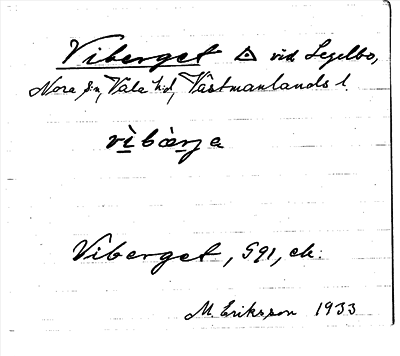 Viberget △ vid Legelbo,
Nora sn, Våla hd, Västmanlands l.
vìbàrja
Viberget, 591, ek:
M. Eriksson 1933